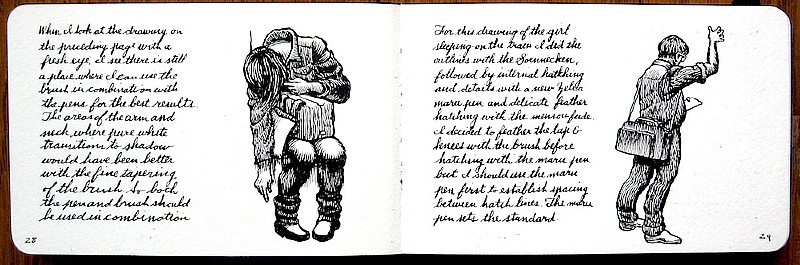 When I look at the drawing on
the preceding page with a
fresh eye, I see there is still
a place where I can use the
brush in combination with
the pens for the best results.
The areas of the arm and
neck where pure white
transitions to shadow
would have been better
with the fine tapering
of the brush. So both
the pen and brush should
be used in combination
28
For this drawing of the girl
sleeping on the train I did the
outlines with the Soennecken,
followed by internal hatching
and details with a new Zebra
maru pen and delicate feather
hatching with the
I decided to feather the lap &
knees with the brush before
hatching with the maru pen
but I should use the maru
pen first to establish spacing
between hatch lines. The maru
pen sets the standard.
29